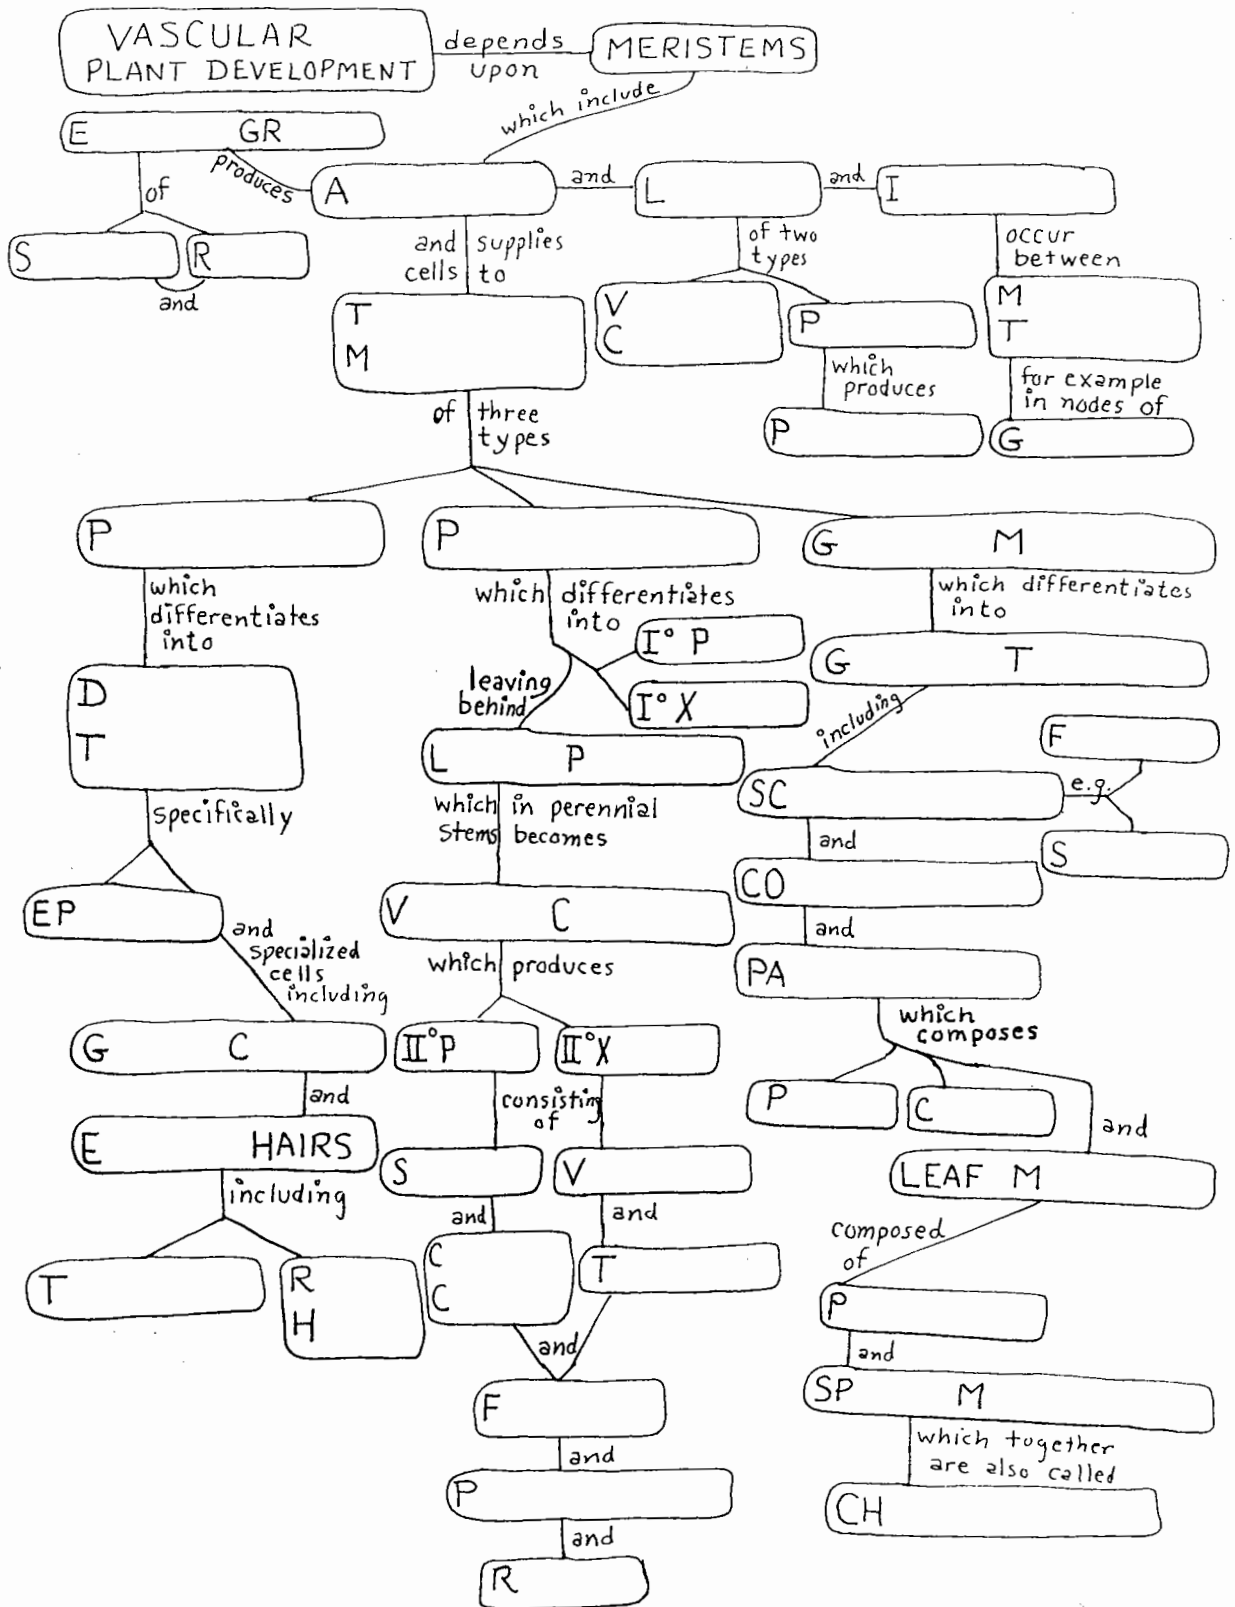 VASCULAR
PLANT DEVELOPMENT
depends
upon
MERISTEMS
which include
E GR
produces
of
S
R
and
A
and
L
and
I
and supplies
cells to
T
M
of two
types
V
C
P
which
produces
P
occur
between
M
T
for example
in nodes of
G
of three
types
P
P
G M
which
differentiates
into
D
T
specifically
EP
and
specialized
cells
including
G C
and
E HAIRS
including
T
R
H
which differentiates
into
I° P
I° X
leaving
behind
L P
which in perennial
stems becomes
V C
which produces
II° P
II° X
consisting
of
S
V
and
and
C
C
T
and
F
and
P
and
R
which differentiates
into
G T
including
SC
e.g.
F
S
and
CO
and
PA
which
composes
P
C
and
LEAF M
composed
of
P
and
SP M
which together
are also called
CH